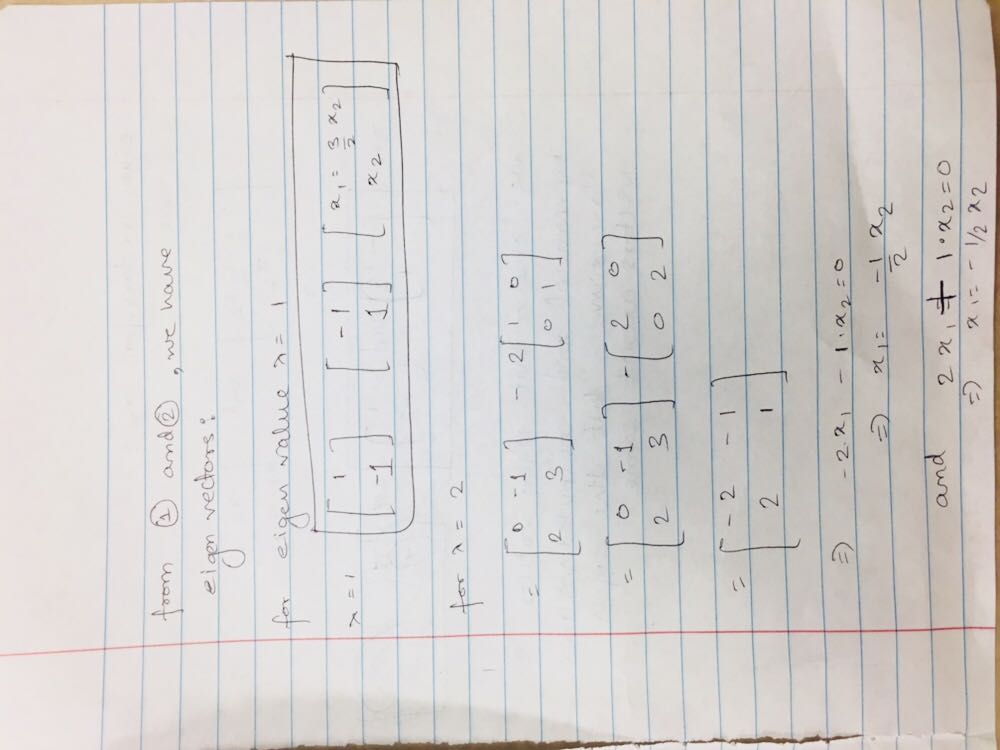 from ① and ②, we have
eigen vectors:
for eigen value λ = 1
λ = 1 [1 -1] [-1 1] [x₁ = 3/2 x₂ x₂]
for λ = 2
= [0 -1 2 3] - 2 [1 0 0 1]
= [0 -1 2 3] - [2 0 0 2]
= [-2 -1 2 1]
⇒ -2·x₁ - 1·x₂ = 0
⇒ x₁ = -1/2 x₂
and 2x₁ + 1·x₂ = 0
⇒ x₁ = -1/2 x₂